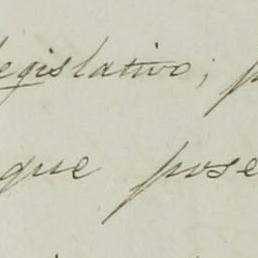 legislativo; p
que pose